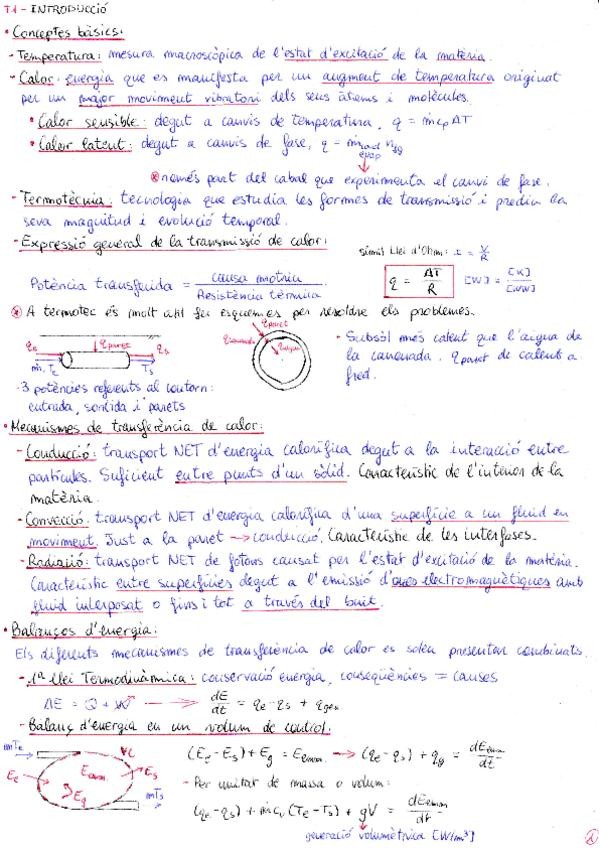 T.1 - INTRODUCCIÓ
• Conceptes bàsics:
- Temperatura: mesura macroscòpica de l'estat d'excitació de la matèria.
- Calor: energia que es manifesta per un augment de temperatura originat
per un major moviment vibratori dels seus àtoms i molècules.
• Calor sensible: degut a canvis de temperatura, q = ṁcpΔT
• Calor latent: degut a canvis de fase, q = ṁ
evap
⊛ només part del cabal que experimenta el canvi de fase.
- Termotècnia: tecnologia que estudia les formes de transmissió i prediu la
seva magnitud i evolució temporal.
- Expressió general de la transmissió de calor:
símil Llei d'Ohm: I = V/R
Potència transferida = causa motriu / Resistència tèrmica
q = ΔT/R [W] = [K]/[K/W]
⊛ A termotec és molt útil fer esquemes per resoldre els problemes.
qe qparet qs
ṁ, Te Ts
qparet
- Subsòl més calent que l'aigua de
la canonada. qparet de calent a
fred.
· 3 potències referents al contorn:
entrada, sortida i parets
• Mecanismes de transferència de calor:
- Conducció: transport NET d'energia calorífica degut a la interacció entre
partícules. Suficient entre punts d'un sòlid. Característic de l'interior de la
matèria.
- Convecció: transport NET d'energia calorífica d'una superfície a un fluid en
moviment. Just a la paret → conducció. Característic de les interfases.
- Radiació: transport NET de fotons causat per l'estat d'excitació de la matèria.
Característic entre superfícies degut a l'emissió d'ones electromagnètiques amb
fluid interposat o fins i tot a través del buit.
• Balanços d'energia:
Els diferents mecanismes de transferència de calor es solen presentar combinats.
- 1ª Llei Termodinàmica: conservació energia, conseqüències = causes
ΔE = Q + W → dE/dt = qe - qs + qgen
- Balanç d'energia en un volum de control:
ṁTe VC
Ee Eemm Es
Eg ṁTs
(Ee - Es) + Eg = Eemm → (qe - qs) + qg = dEemm/dt
- Per unitat de massa o volum:
(qe - qs) + ṁcv (Te - Ts) + gV = dEemm/dt
generació volumètrica [W/m³]
1